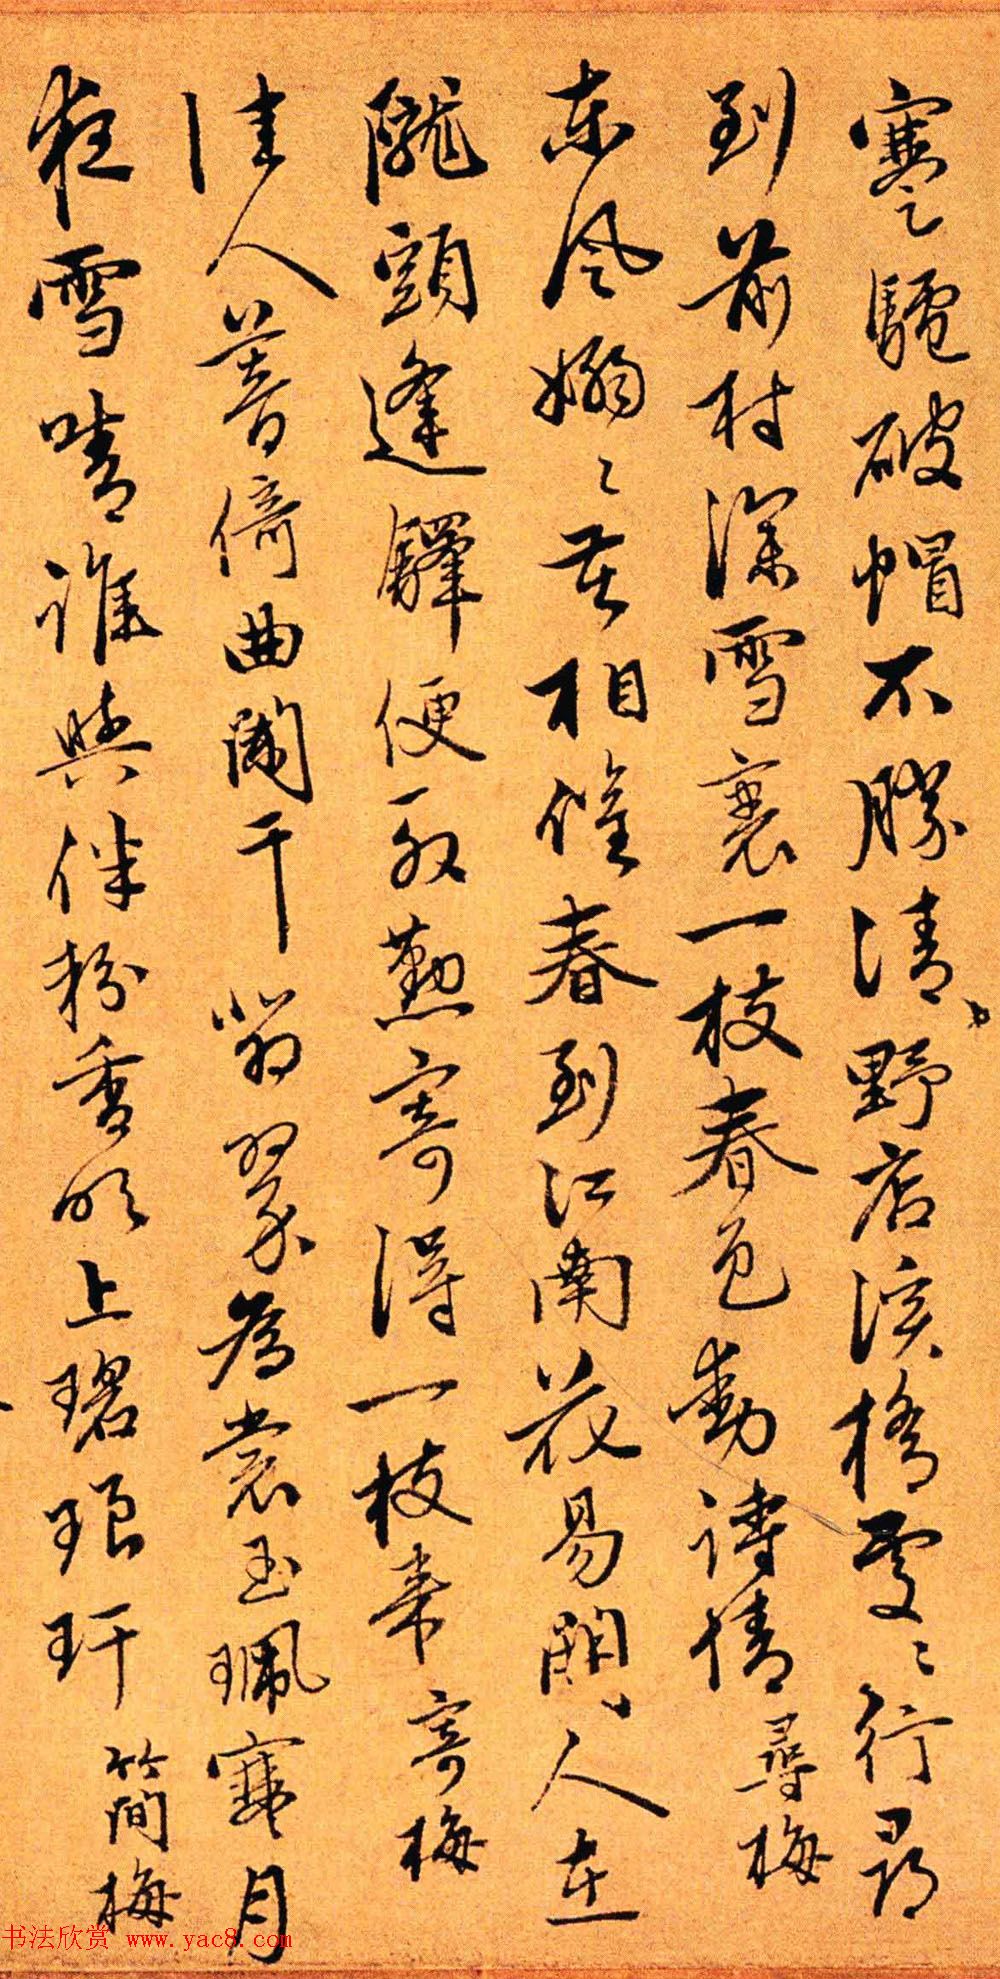 蹇驢破帽不勝清野店溪橋處〻行尋
到前村深雪裏一枝春色動詩情 尋梅
東風嫋〻苦相催春到江南花易開人在
隴頭逢驛便殷勤寄得一枝來 寄梅
佳人暮倚曲闌干翡翠為裳玉珮寒月
夜雪晴誰與伴粉香吹上碧琅玕 簡梅
书法欣赏 www.yac8.com